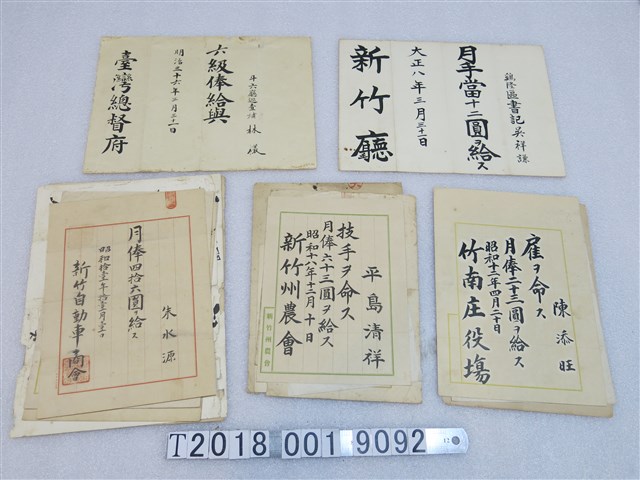 斗六廳巡查補 林儀
六級俸給與
明治三十六年三月三十一日
臺灣總督府
書記吳祥謙
月手當十二圓ヲ給ス
大正八年三月三十一日
新竹廳
朱水源
月俸四拾六圓ヲ給ス
新竹自動車商會
平島清祥
技手ヲ命ス
月俸六十三圓ヲ給ス
昭和十八年十二月十日
新竹州農會
新竹州農會
陳添旺
雇ヲ命ス
月俸二十三圓ヲ給ス
昭和十二年四月二十日
竹南庄役塲
T2018 001 9092